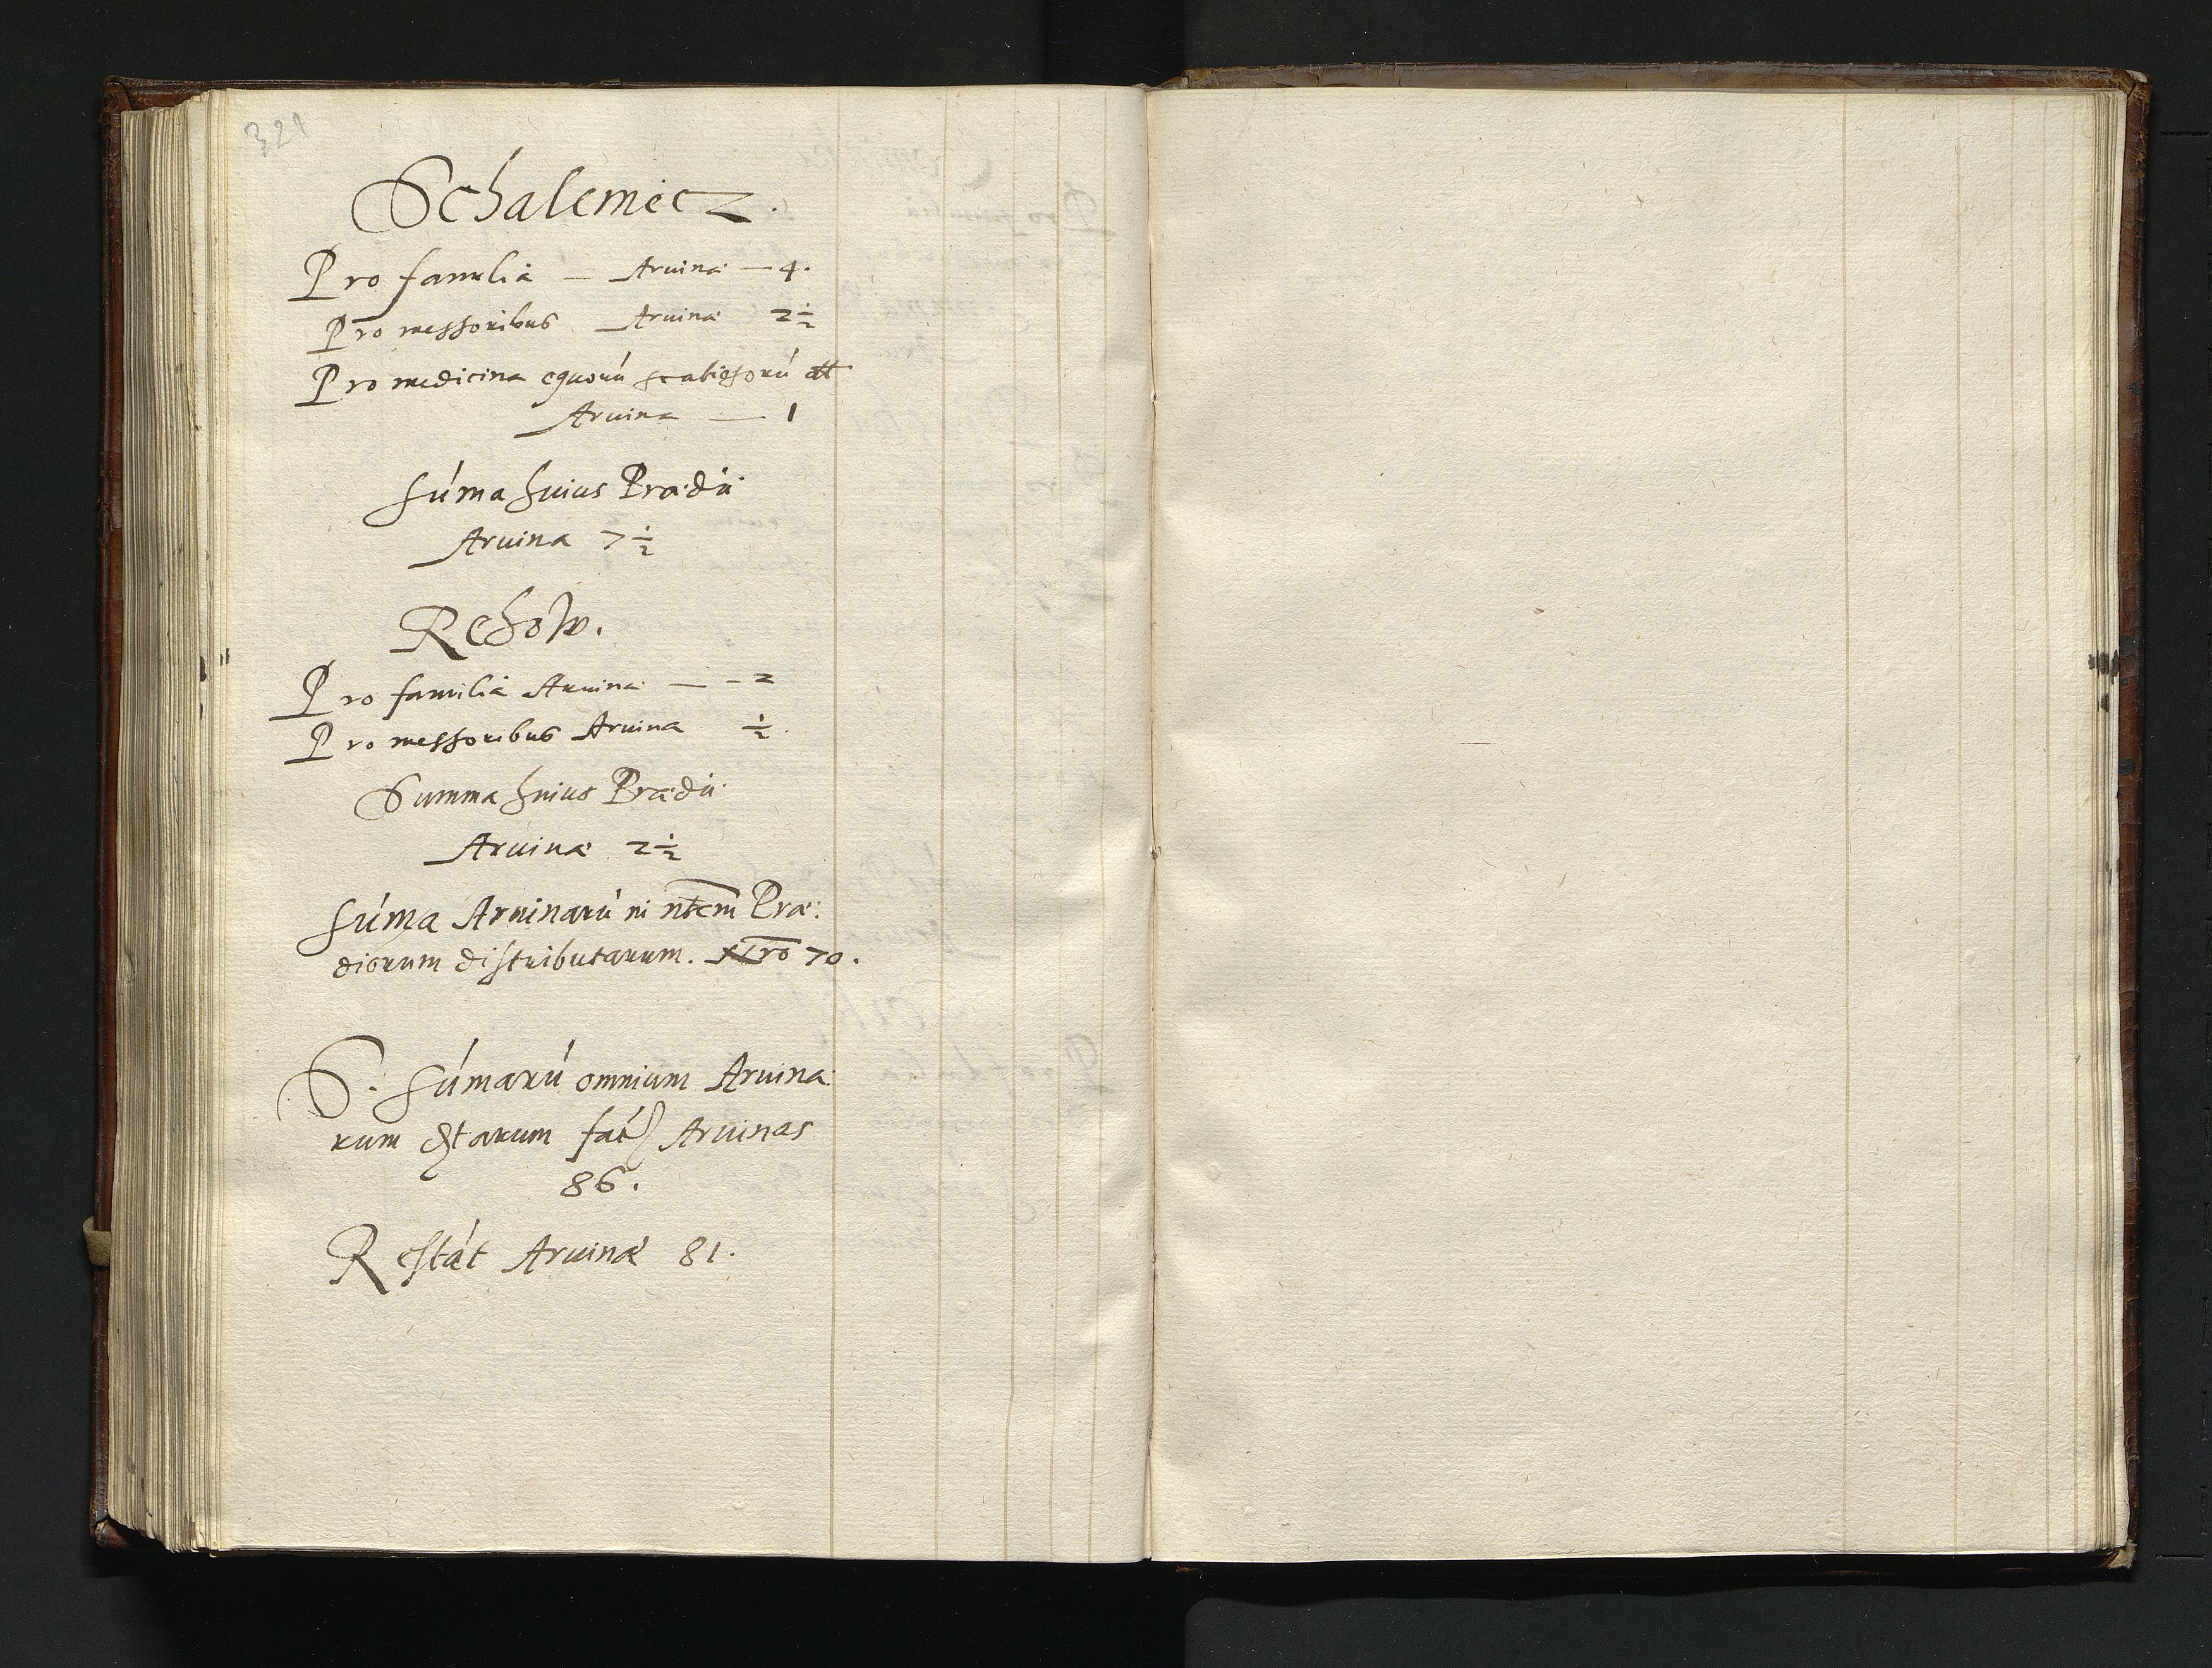 321
Schalemicz.
Pro familia — Aruinæ — 4.
Pro messoribus Aruinæ 2½
Pro medicina equorú scabiosorú
Aruina — 1
súma huius Prædii
Aruina 7½
Rchow.
Pro familia Aruinæ — - 2
Pro messoribus Aruina ½.
Summa huius Prædii
Aruinæ 2½
súma Aruinarú in Præ:
diorum distributarum. Nro 70.
S. súmarú omnium Aruina
rum facit Aruinas
86.
Restát Aruinæ 81.